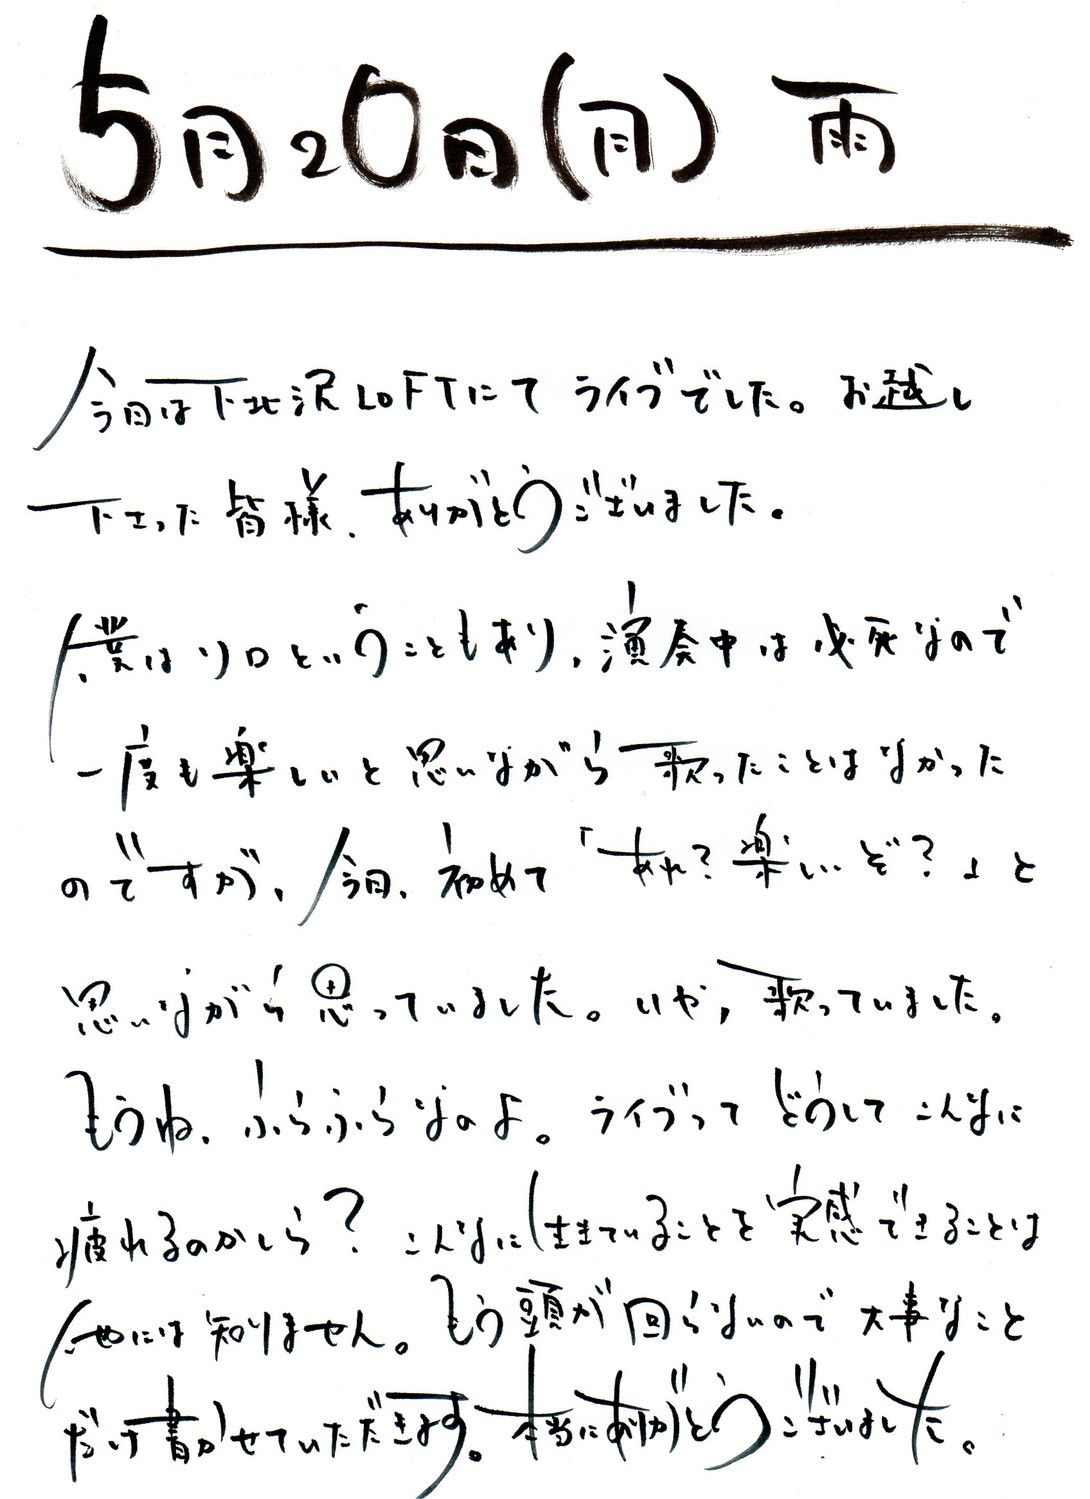 5月20日(月) 雨
今日は下北沢LOFTにて ライブでした。お越し
下さった皆様、ありがとうございました。
僕はソロということもあり、演奏中は必死なので
一度も楽しいと思いながら歌ったことはなかった
のですが、今日、初めて「あれ?楽しいぞ?」と
思いながら思っていました。いや、歌っていました。
もうね、ふらふらなのよ。ライブってどうしてこんなに
疲れるのかしら?こんなに生きていることを実感できることは
他には知りません。もう頭が回らないので大事なこと
だけ書かせていただきます。本当にありがとうございました。